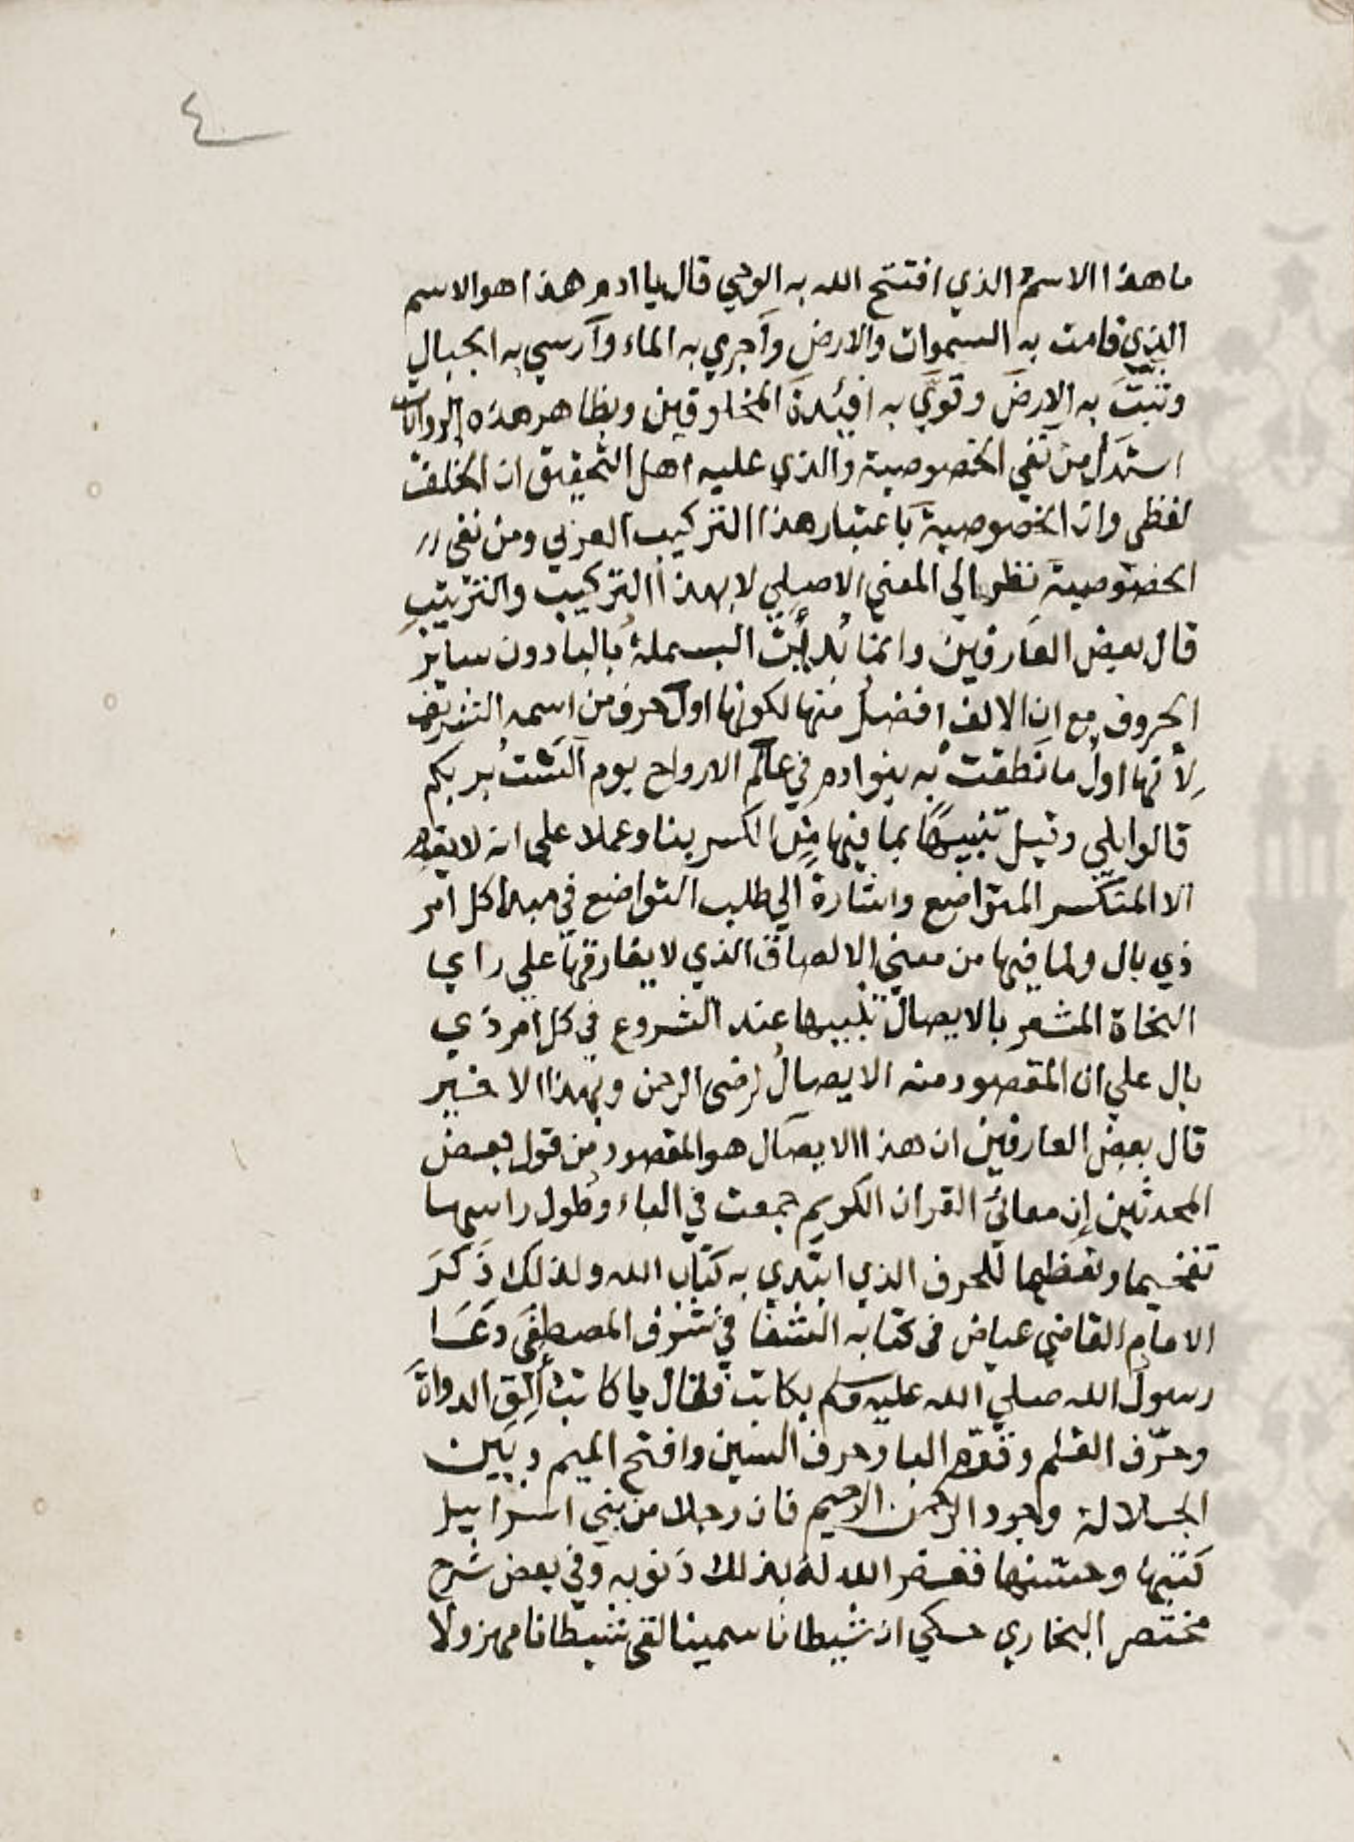 ٤
ما هذا الاسمُ الذي افتتح الله به الوحي قال يا ادم هذا هو الاسم
الذي قامت به السموات والارض وأجري به الماء وأرسي به الجبال
وثبتَ به الارضَ وقويَ به افيئدةَ المخلوقين وبظاهر هذه الروايات
استدل من نفي الخصوصية والذي عليه اهل التحقيق ان الخلف
لفظي وان الخصوصيةَ باعتبار هذا التركيب العربي ومن نفى
الخصوصية نظر الي المعني الاصلي لا بهذا التركيب والترتيب
قال بعض العارفين وانما بُدِأَت البسملةُ بالبا دون سائر
الحروف مع ان الالف افضلُ منها لكونها اول حرف من اسمه الشريف
لِأنها اولُ ما نَطقت به بنوادم في عالم الارواح يوم ألَسْتُ بربكم
قالوا بلي وقيل تنبيهًا بما فيها مِن الكسر بنا وعملا علي انه لا يقرء
الا المتكسر المتواضع واشارة الي طلب التواضع في مبدا كل امر
ذي بال ولما فيها من معني الالصاق الذي لا يفارقها علي راي
النحاة المشعر بالايصال تنبيها عند الشروع في كل امر ذي
بال علي ان المقصود منه الايصالُ لرضى الرحمن وبهذا الاخير
قال بعض العارفين ان هذا الايصال هو المقصود من قول بعض
المحدثين إن معانيَ القران الكريم جمعت في الباء وطول راسها
تفخيما وتعظيما للحرف الذي ابتدي به كتاب الله ولذلك ذَكَرَ
الامام القاضي عياض في كتابه الشفا في شرف المصطفى دَعَا
رسول الله صلي الله عليه وسلم بكاتب فقال يا كاتبُ أَلِقِ الدواةَ
وحرّف القلم وقوم البا وحرف السين وافتح الميم وبَين
الجلالة وجود الرحمن الرحيم فان رجلا من بني اسراييل
كَتبها وحسّنها فغفر الله له بذلك ذَنوبه وفي بعض شرح
مختصر البخاري حكي ان شيطانا سمينا لقى شيطانا مهزولا